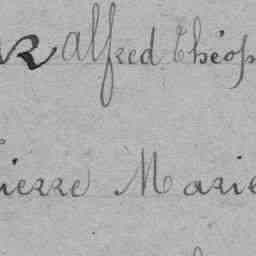 R Alfred Théop
ierre Marie